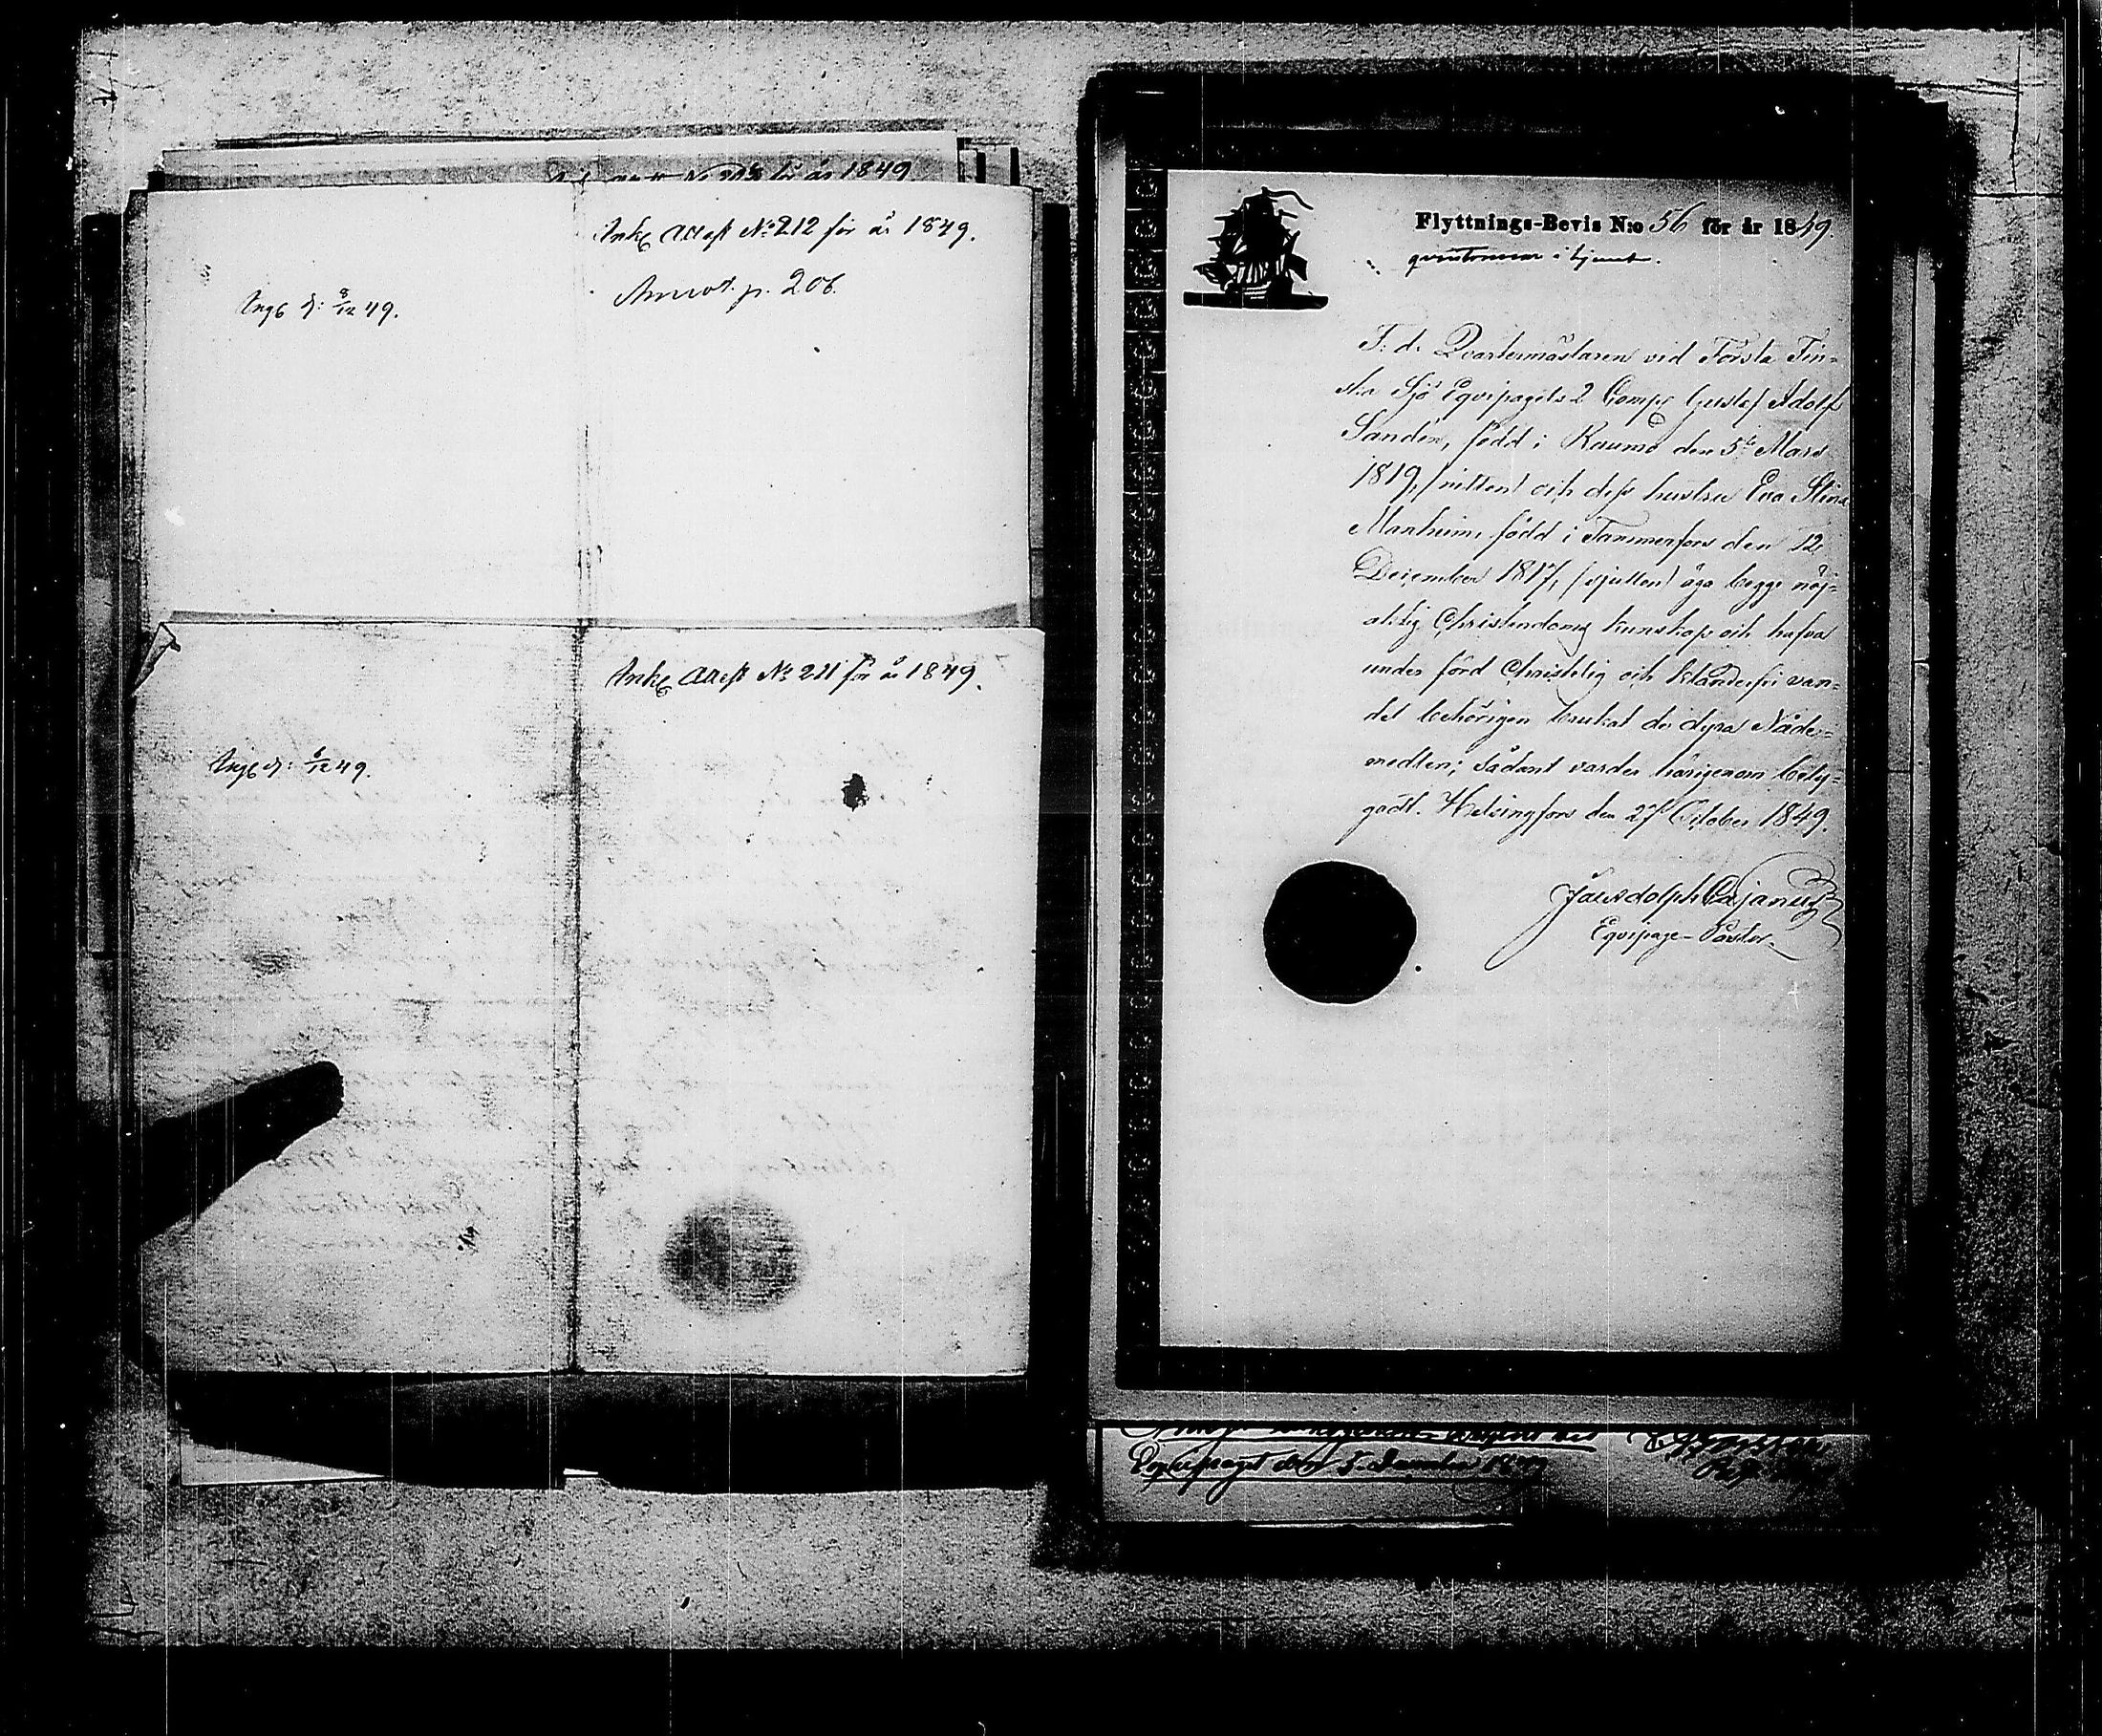 för år 1849.
Ank. Attest No 212 för år 1849.
Annot. p. 206.
Ing. d: 8/12 49.
Ank. Attest No 211 för år 1849.
49.
Flyttnings-Bevis N:o 56 för år 1849.
F: d. Qvartermästaren vid Första Fin-
ska Sjö Equipagets 2 Comp. Gustaf Adolf
Sandén, född i Raumo den 5te Mars
1819, (nitton) och dess hustru Eva Stina
Manheim, född i Tammerfors den 12
December 1817, (sjutton) äga begge nöj-
aktig Christendoms kunskap och hafva
under förd Christelig och klanderfri van-
del behörigen brukat de dyra Nåde-
medlen; Sådant varder härigenom bety-
gadt. Helsingfors den 27 October 1849.
Cajanus
Equipage-Pastor.
Equipaget den 5 December 1849